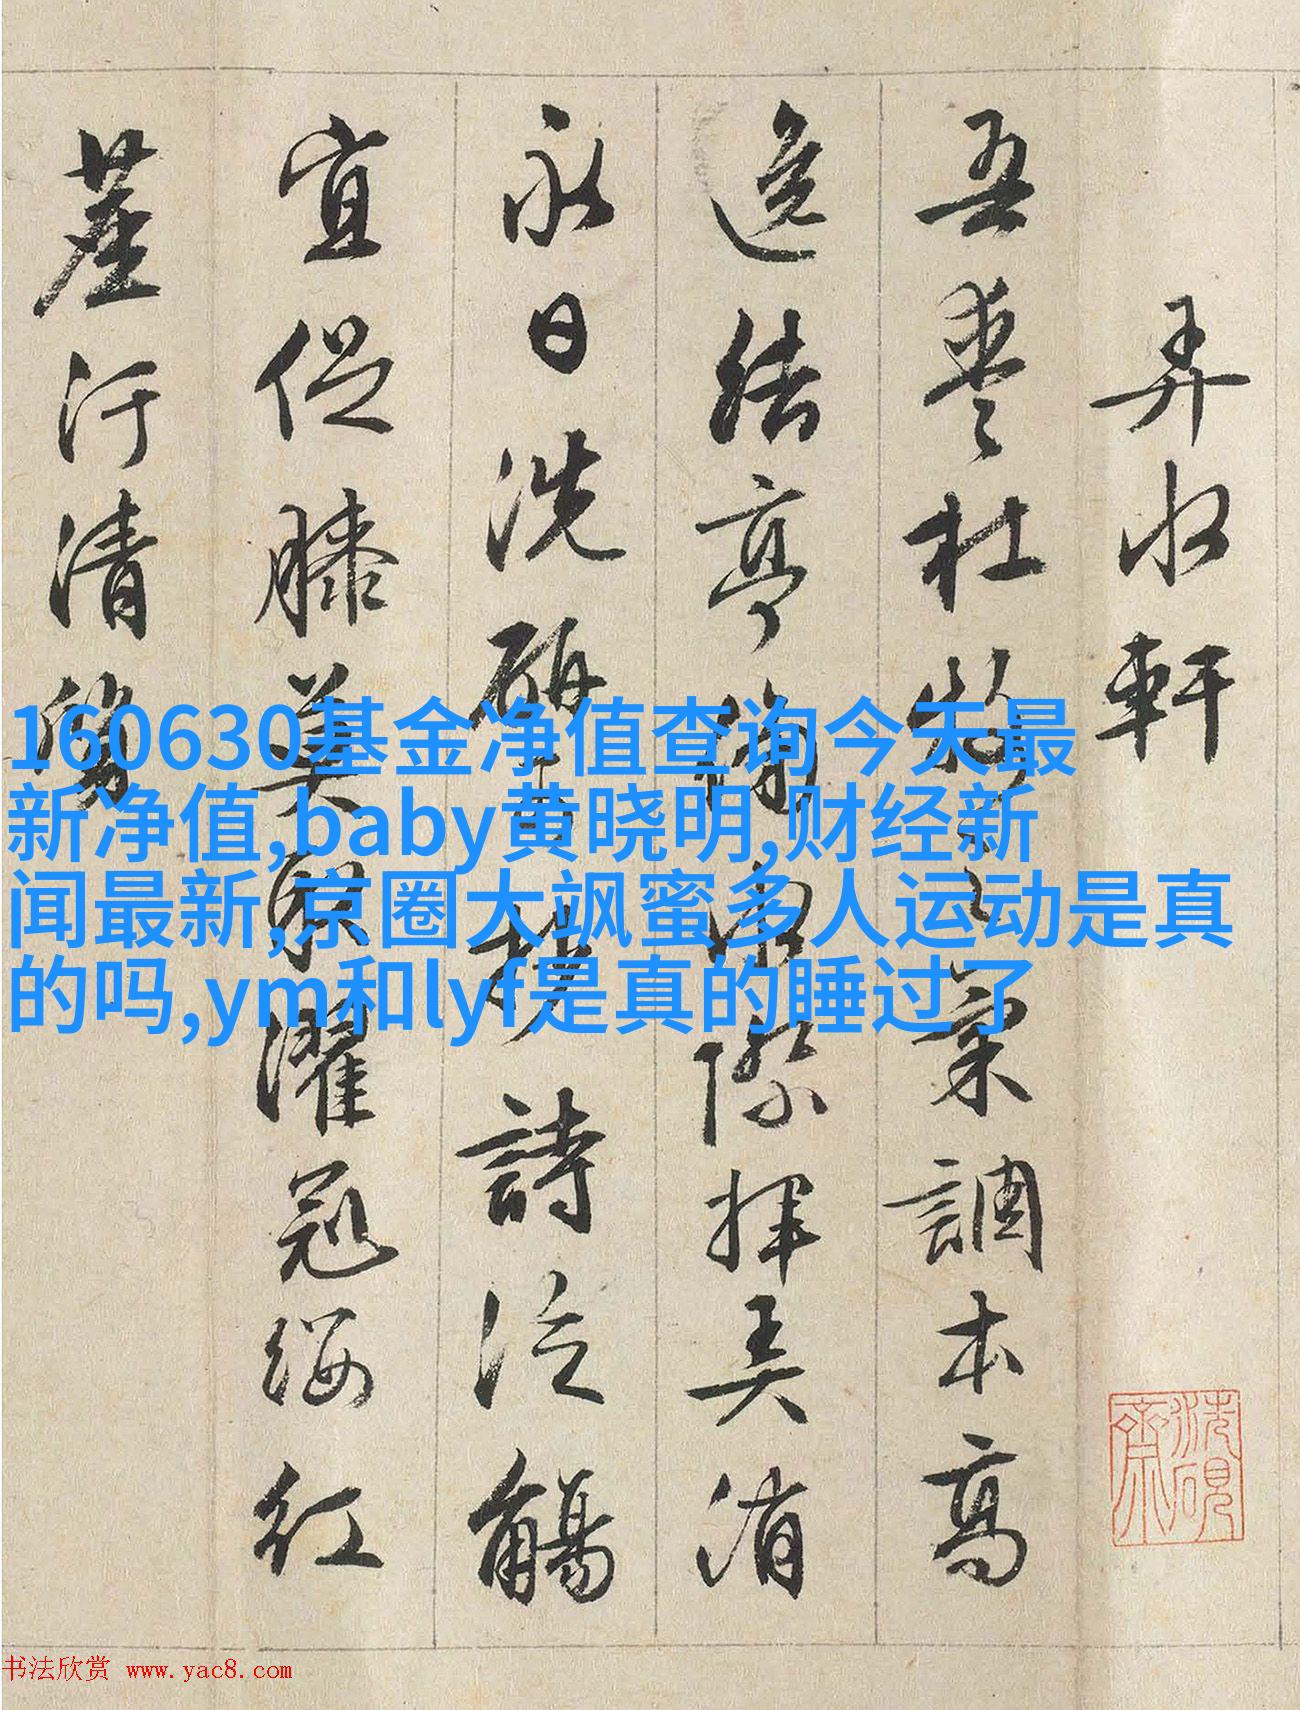 弄水軒
吾愛杜牧之氣調本高
逸結亭俯溪際揮弄消
永日洗硏濡詩泛觴
宜促膝莫取濯冠纓紅
塵汙清
160630基金净值查询今天最
新净值,baby黄晓明,财经新
闻最新,京圈大飒蜜多人运动是真
的吗,ym和lyf是真的睡过了
洗硯齋
书法欣赏 www.yac8.com